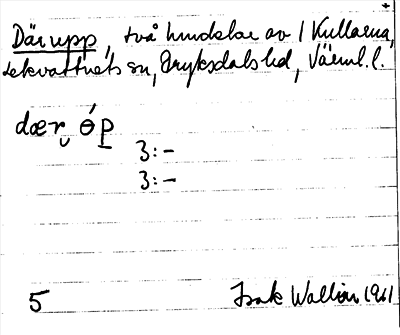 Därupp, två hundelar av 1 Kullarna,
Lekvattnets sn, Fryksdals hd, Värml. l.
dær̯ ǿp
3:-
3:-
5 Isak Wallin 1921